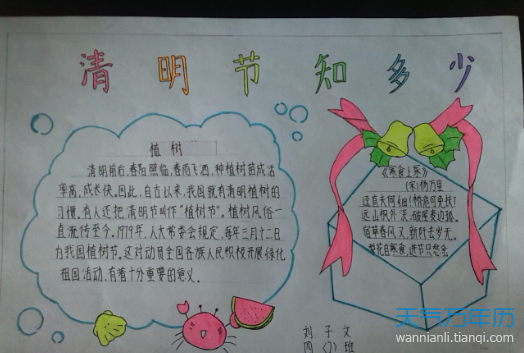 清明节知多少
植树
清明前后,春阳照临,春雨飞洒,种植树苗成活
率高,成长快。因此,自古以来,我国就有清明植树的
习惯。有人还把清明节叫作“植树节”。植树风俗一
直流传至今。1979年,人大常委会规定,每年三月十二日
为我国植树节。这对动员全国各族人民积极开展绿化
祖国活动,有着十分重要的意义。
《寒食上冢》
(宋)杨万里
迳直夫何细!桥危可免扶?
远山枫外淡,破屋麦边孤。
宿草春风又,新阡去岁无。
梨花自寒食,进节只愁余。
刘子文
四(3)班
天气万年历
wannianli.tianqi.com